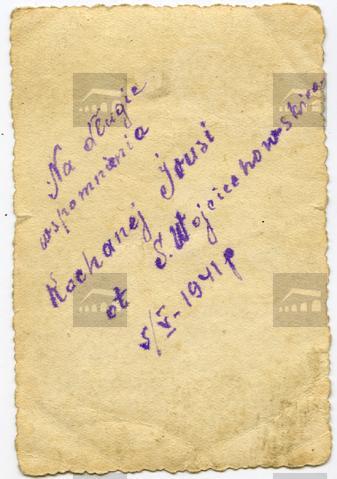 Na długie
wspomnienia
Kochanej Irusi
ot S. Wojciechowskiego
5/V-1941 р